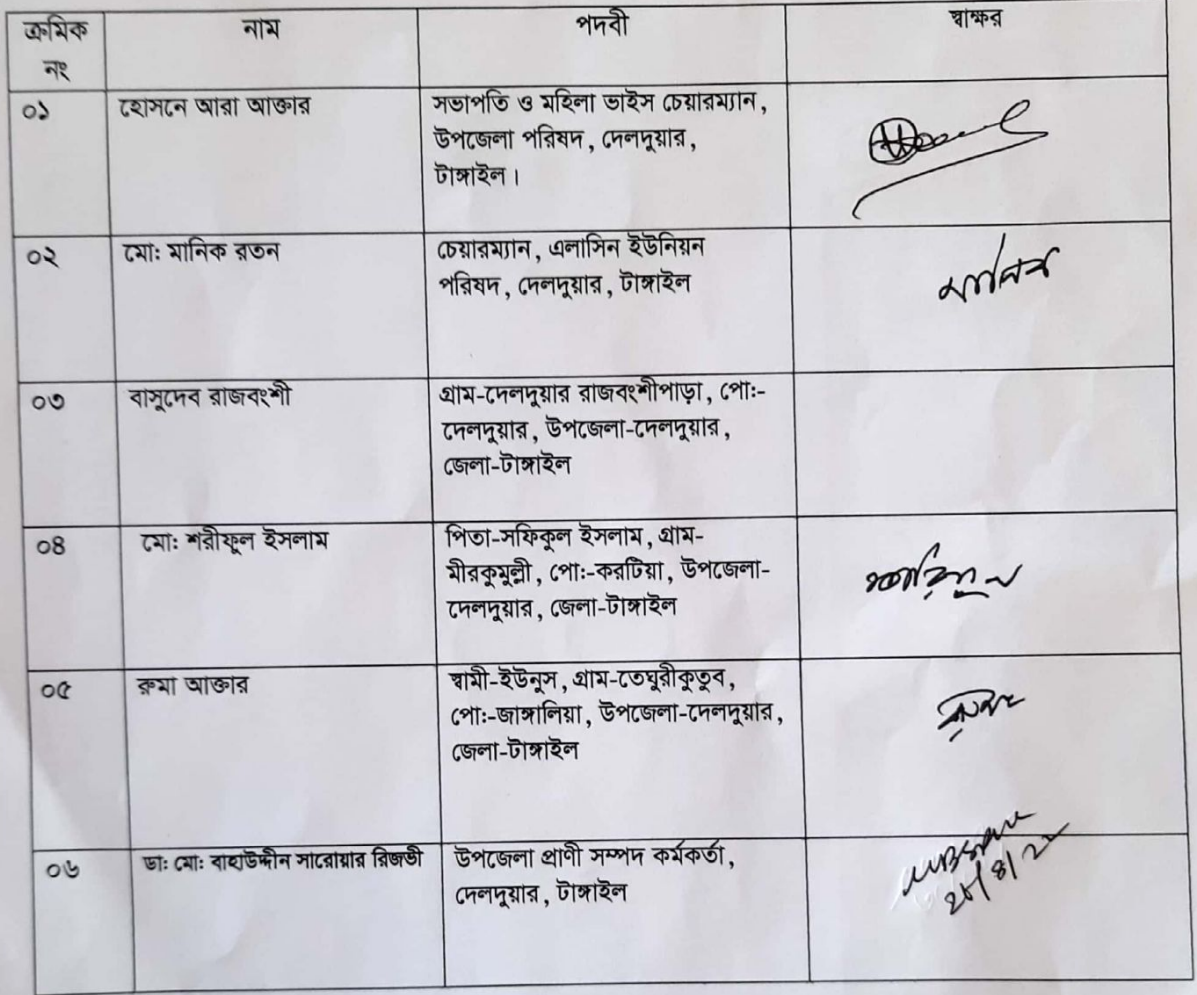 ক্রমিক নাম পদবী স্বাক্ষর
নং
০১ হোসনে আরা আক্তার সভাপতি ও মহিলা ভাইস চেয়ারম্যান,
উপজেলা পরিষদ, দেলদুয়ার,
টাঙ্গাইল।
০২ মো: মানিক রতন চেয়ারম্যান, এলাসিন ইউনিয়ন
পরিষদ, দেলদুয়ার, টাঙ্গাইল
মানিক
০৩ বাসুদেব রাজবংশী গ্রাম-দেলদুয়ার রাজবংশীপাড়া, পো:-
দেলদুয়ার, উপজেলা-দেলদুয়ার,
জেলা-টাঙ্গাইল
০৪ মো: শরীফুল ইসলাম পিতা-সফিকুল ইসলাম, গ্রাম-
মীরকুমুল্লী, পো:-করটিয়া, উপজেলা-
দেলদুয়ার, জেলা-টাঙ্গাইল
০৫ রুমা আক্তার স্বামী-ইউনুস, গ্রাম-তেঘুরীকুতুব,
পো:-জাঙ্গালিয়া, উপজেলা-দেলদুয়ার,
জেলা-টাঙ্গাইল
০৬ ডা: মো: বাহাউদ্দীন সারোয়ার রিজভী উপজেলা প্রাণী সম্পদ কর্মকর্তা,
দেলদুয়ার, টাঙ্গাইল